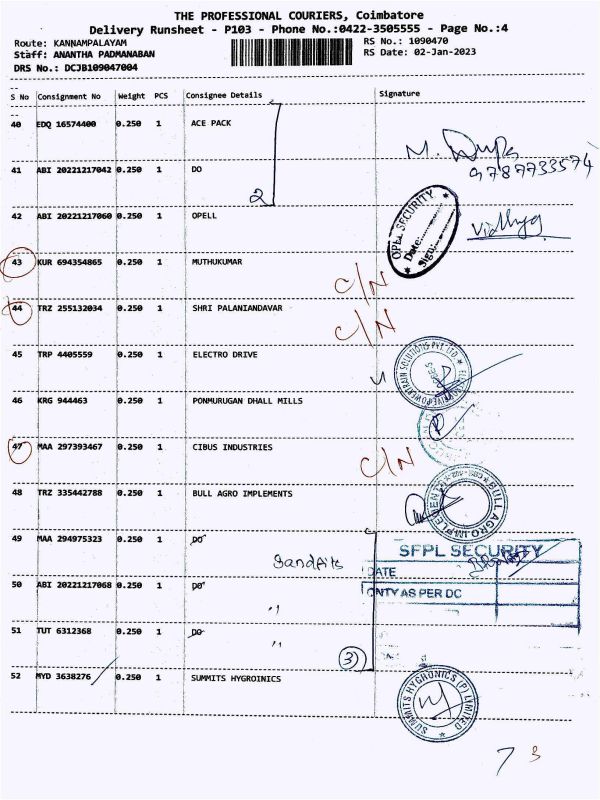 THE PROFESSIONAL COURIERS, Coimbatore
Delivery Runsheet - P103 - Phone No.:0422-3505555 - Page No.:4
Route: KANNAMPALAYAM
Staff: ANANTHA PADMANABAN
DRS No.: DCJB109047004
RS No.: 1090470
RS Date: 02-Jan-2023
S No Consignment No Weight PCS Consignee Details Signature
40 EDQ 16574400 0.250 1 ACE PACK
M.
9787733574
41 ABI 20221217042 0.250 1 DO
2
42 ABI 20221217060 0.250 1 OPELL
OPEL SECURITY
Date:
Sign:
Vidhya
43 KUR 694354865 0.250 1 MUTHUKUMAR C/N
44 TRZ 255132034 0.250 1 SHRI PALANIANDAVAR C/N
45 TRP 4405559 0.250 1 ELECTRO DRIVE
46 KRG 944463 0.250 1 PONMURUGAN DHALL MILLS
47 MAA 297393467 0.250 1 CIBUS INDUSTRIES C/N
48 TRZ 335442788 0.250 1 BULL AGRO IMPLEMENTS
BULL AGRO IMPLEMENTS
49 MAA 294975323 0.250 1 DO
Sandfits
SFPL SECURITY
DATE
QNTY AS PER DC
50 ABI 20221217068 0.250 1 DO
"
51 TUT 6312368 0.250 1 DO
"
3)
52 MYD 3638276 0.250 1 SUMMITS HYGROINICS
SUMMITS HYGRONICS (P) LIMITED
7 3